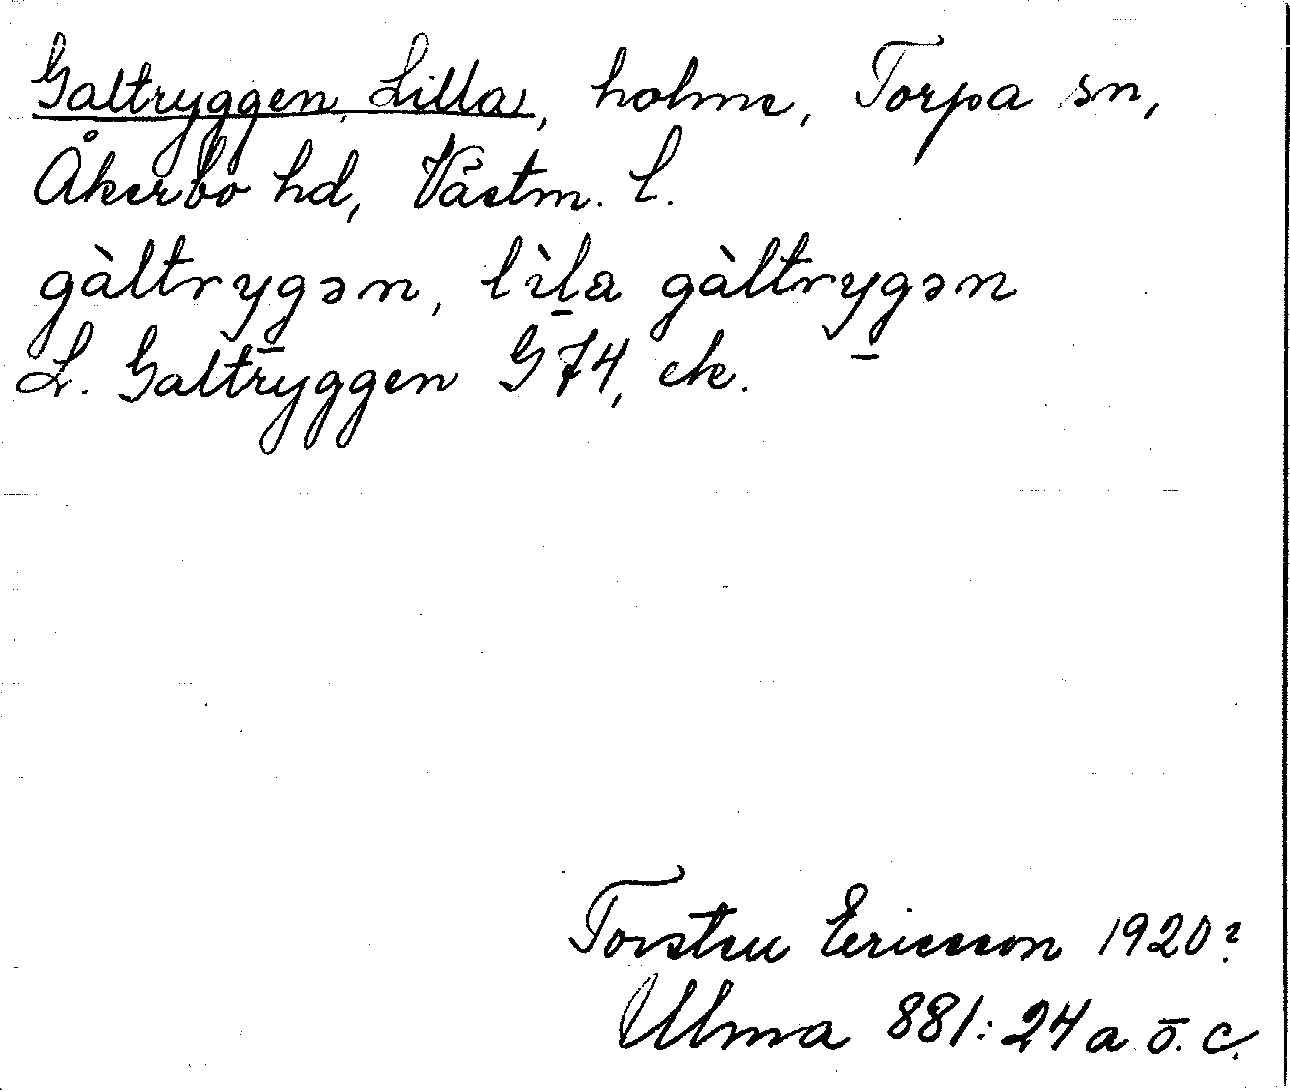 Galtryggen, Lilla, holme, Torpa sn,
Åkerbo hd, Västm. l.
gàltrygən, lìla gàltrygən
L. Galtryggen G 74, ek.
Torsten Ericsson 1920?
Ulma 881:24 a o. c.